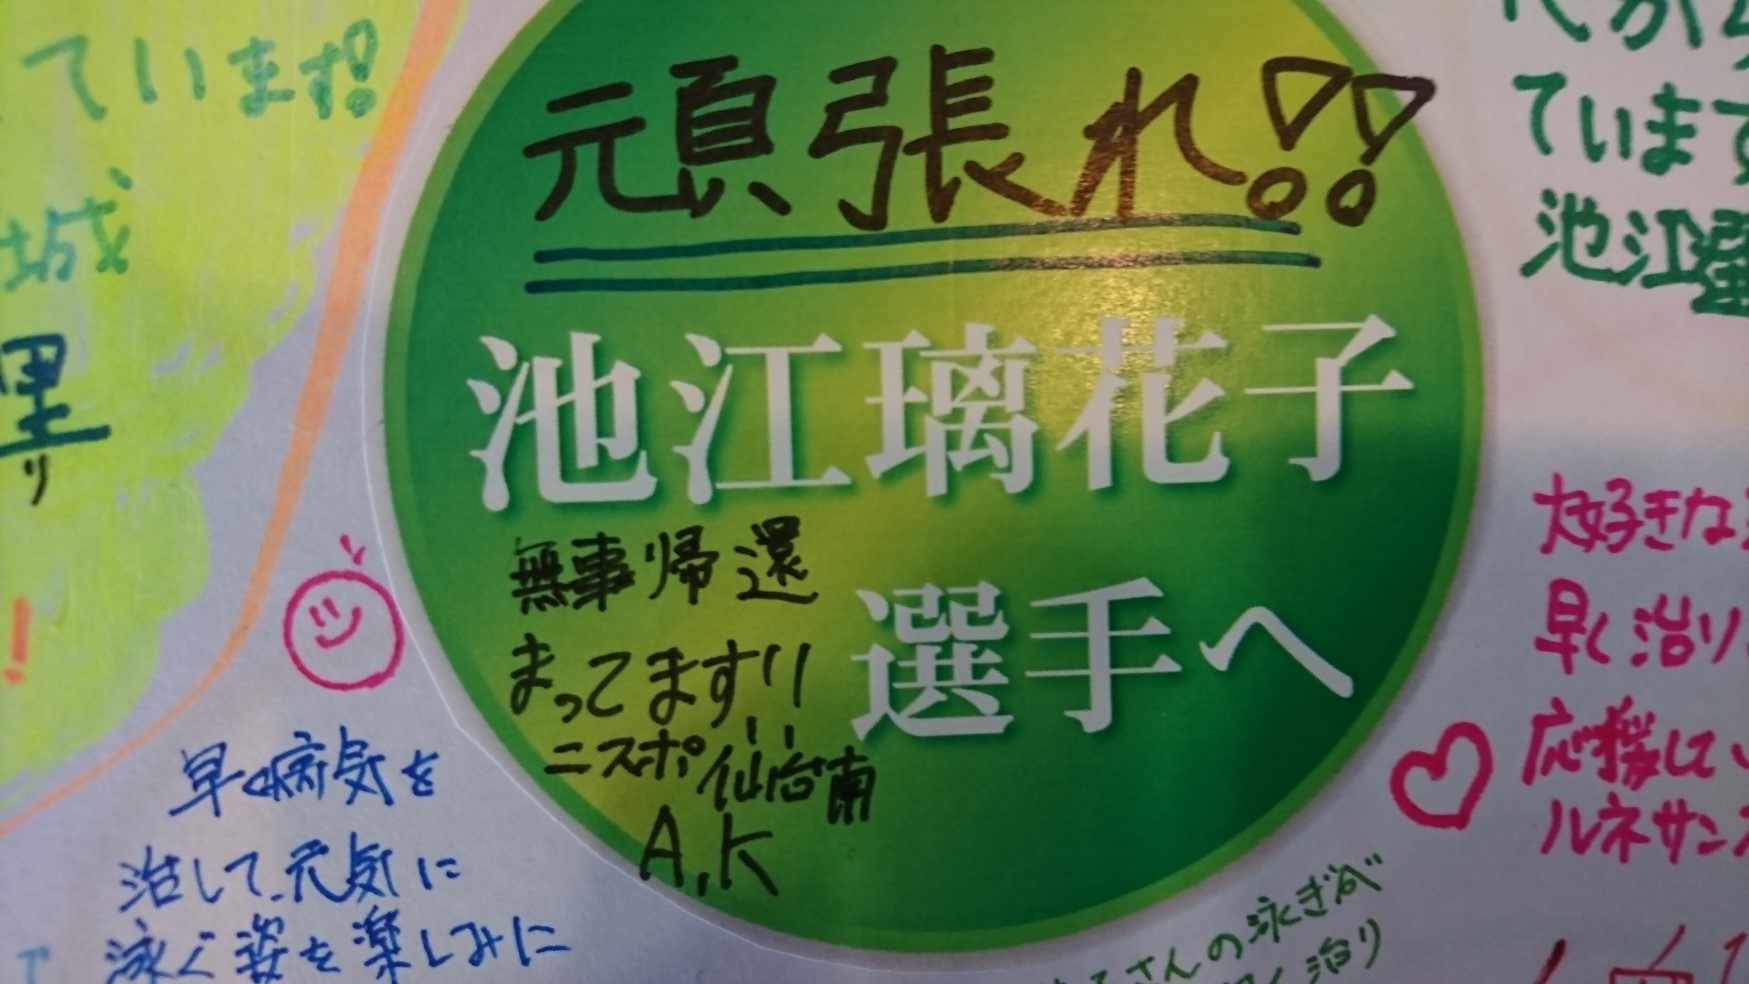 ています!
城
里
り
!
頑張れ!!
池江璃花子
選手へ
無事帰還
まってます!!
ニスポ仙台南
A.K
早く病気を
治して、元気に
泳ぐ姿を楽しみに
ています
池江選
大好きな
早く治り
応援してい
ルネサンス
さんの泳ぎが
治り